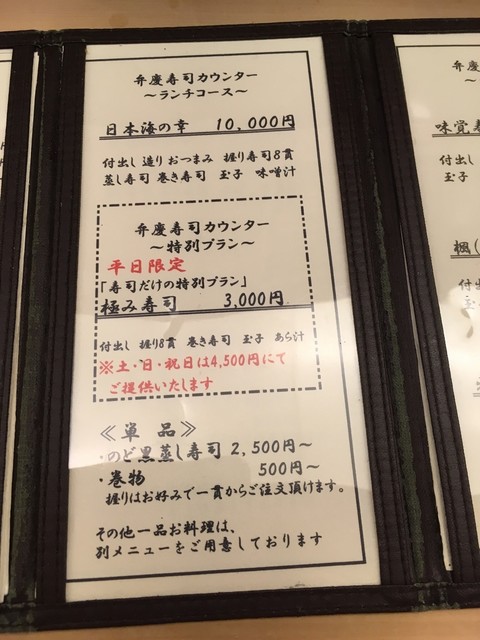 弁慶寿司カウンター
～ランチコース～
日本海の幸 10,000円
付出し 造り おつまみ 握り寿司8貫
蒸し寿司 巻き寿司 玉子 味噌汁
弁慶寿司カウンター
～特別プラン～
平日限定
「寿司だけの特別プラン」
極み寿司 3,000円
付出し 握り8貫 巻き寿司 玉子 あら汁
※土・日・祝日は4,500円にて
ご提供いたします
≪単品≫
・のど黒蒸し寿司 2,500円～
・巻物 500円～
握りはお好みで一貫からご注文頂けます。
その他一品お料理は、
別メニューをご用意しております
弁
～
味覚
付出し
玉子
楓(
付出